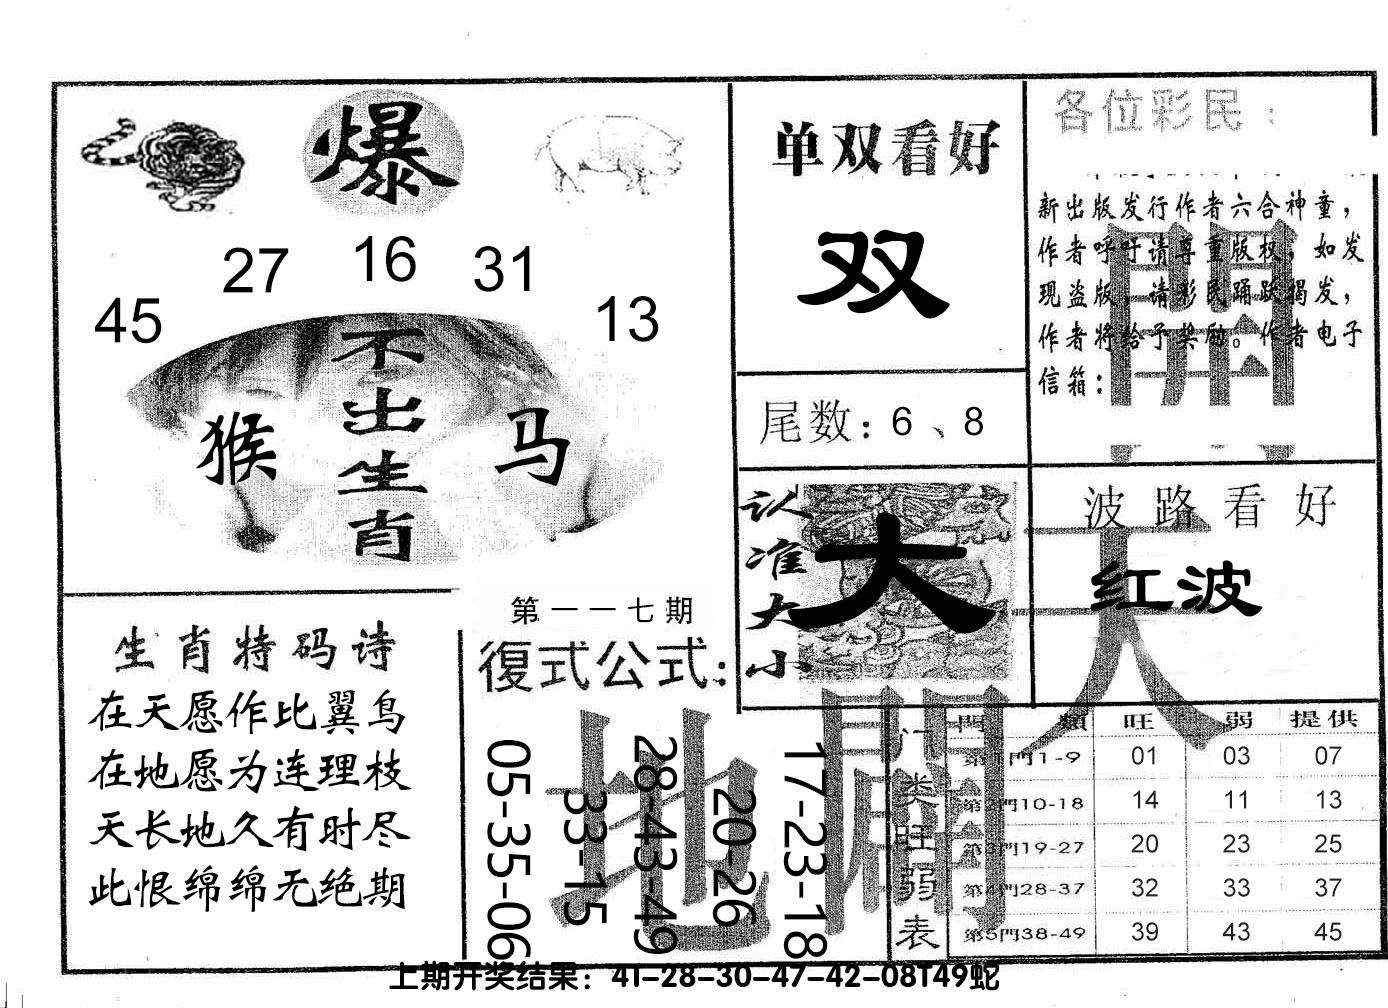 爆
45
27
16
31
13
猴
不出生肖
马
单双看好
双
尾数：6、8
各位彩民：
新出版发行作者六合神童，
作者呼吁请尊重版权，如发
现盗版，请彩民踊跃揭发，
作者将给予奖励。作者电子
信箱：
開
认准大小
大
波路看好
红波
天
生肖特码诗
在天愿作比翼鸟
在地愿为连理枝
天长地久有时尽
此恨绵绵无绝期
第一一七期
復式公式：
05-35-06
33-15
28-43-49
20-26
17-23-18
地
門类旺弱表
門類 旺 弱 提供
第1門1-9 01 03 07
第2門10-18 14 11 13
第3門19-27 20 23 25
第4門28-37 32 33 37
第5門38-49 39 43 45
上期开奖结果：41-28-30-47-42-08T49蛇